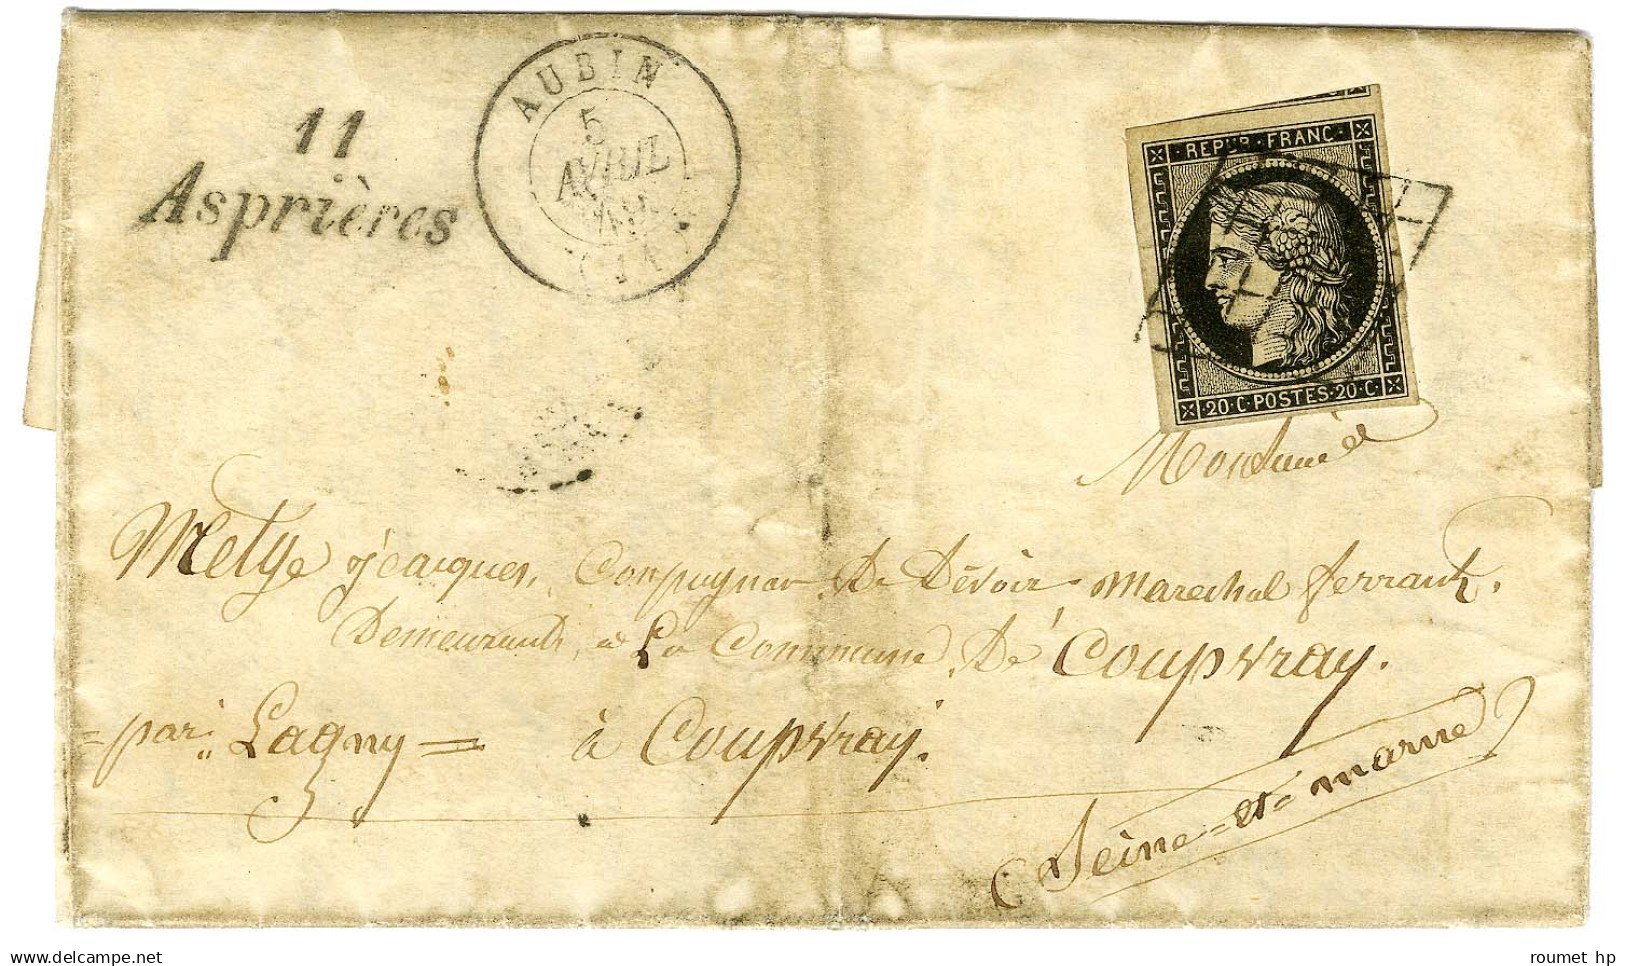 11
Asprières
AUBIN
5
AVRIL
(11)
REPUB·FRANC·
·20·C·POSTES·20·C·
Monsieur
Metge jeacques, Compagnon De Dévoir Marechal ferrant,
Demeurant, a La Commune, De Coupvray.
=par Lagny= à Coupvray.
(Seine=et=marne)
roumet hp